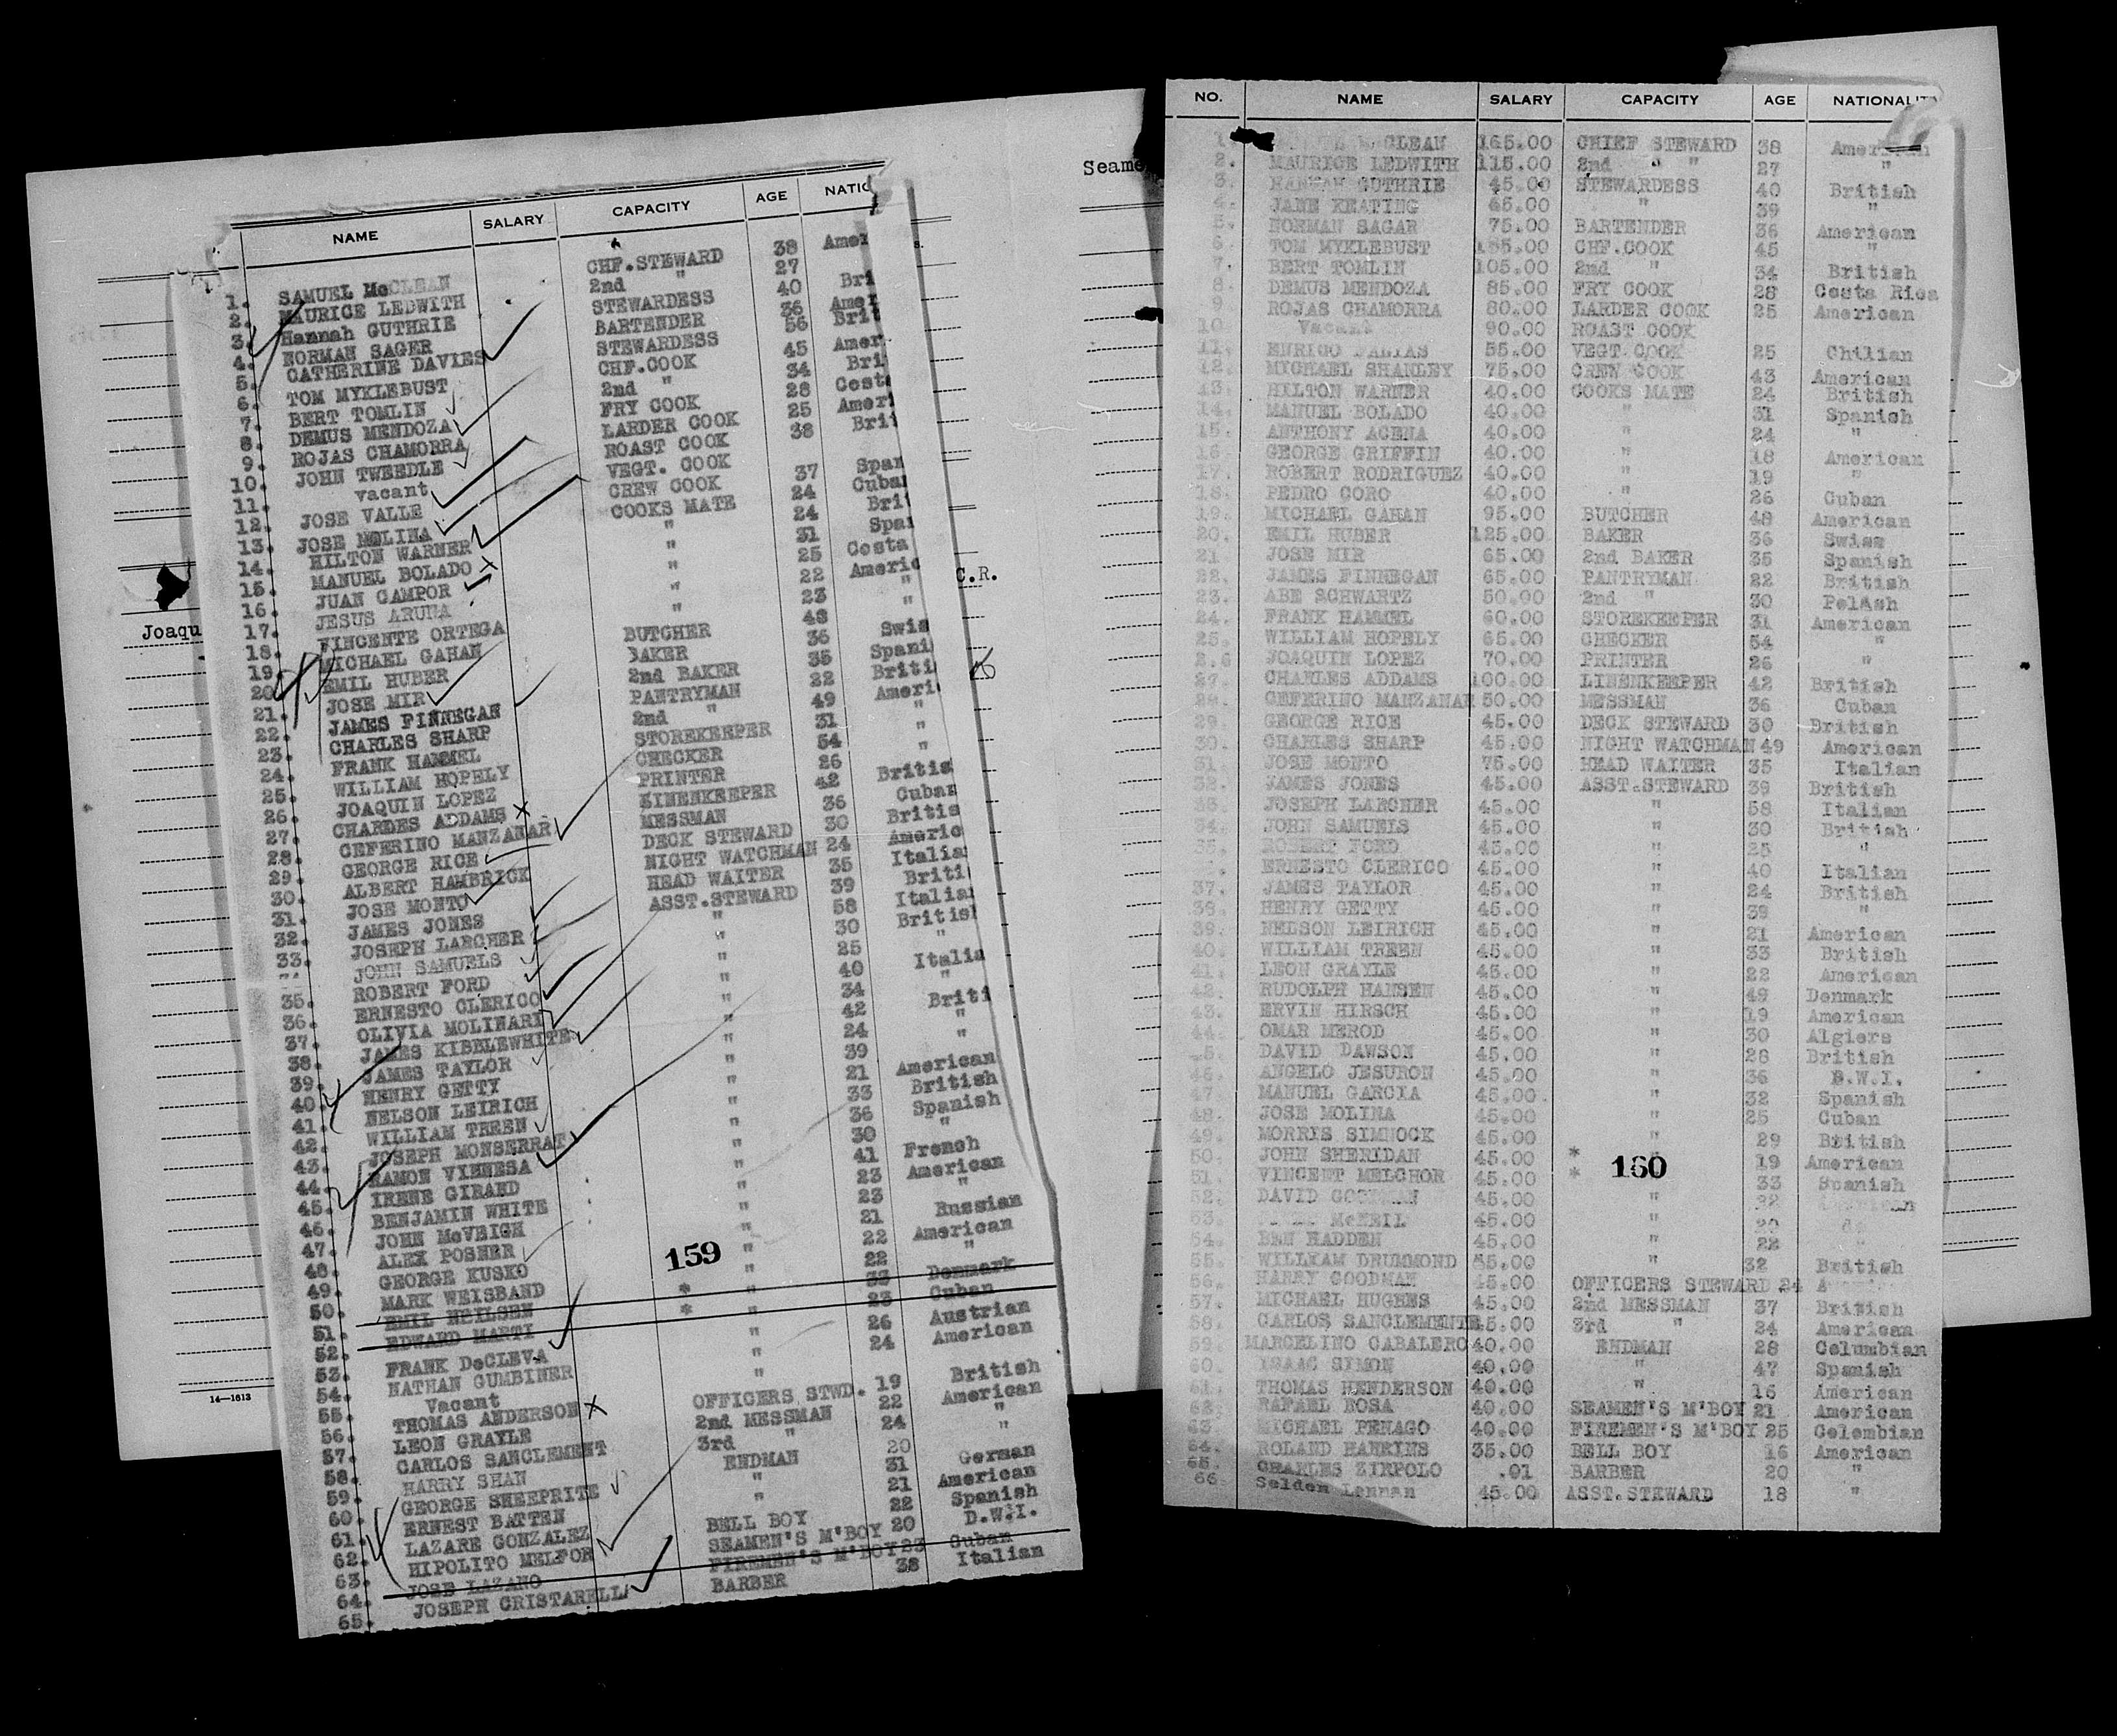 NAME SALARY CAPACITY AGE NATIO
1. SAMUEL McCLEAN CHF.STEWARD 38 Amer
2. MAURICE LEDWITH 2nd " 27
3. Hannah GUTHRIE STEWARDESS 40 Bri
4. NORMAN SAGER BARTENDER 36 Amer
5. CATHERINE DAVIES STEWARDESS 56 Brit
6. TOM MYKLEBUST CHF.COOK 45 Amer
7. BERT TOMLIN 2nd " 34 Bri
8. DEMUS MENDOZA FRY COOK 28 Costa
9. ROJAS CHAMORRA LARDER COOK 25 Amer
10. JOHN TWEEDLE ROAST COOK 38 Brit
11. vacant VEGT. COOK
12. JOSE VALLE CREW COOK 37 Span
13. JOSE MOLINA COOKS MATE 24 Cuban
14. HILTON WARNER " 24 Brit
15. MANUEL BOLADO " 31 Spa
16. JUAN CAMPOR " 25 Costa C.R.
17. JESUS ARUMA " 22 Americ
18. VINCENTE ORTEGA " 23 "
19. MICHAEL GAHAN BUTCHER 48 "
20. EMIL HUBER BAKER 36 Swis
21. JOSE MIR 2nd BAKER 35 Spani
22. JAMES FINNEGAN PANTRYMAN 22 Briti
23. CHARLES SHARP 2nd " 49 Ameri
24. FRANK HAMMEL STOREKEEPER 31 "
25. WILLIAM HOPELY CHECKER 54 "
26. JOAQUIN LOPEZ PRINTER 26 "
27. CHARDES ADDAMS LINENKEEPER 42 Britis
28. CEFERINO MANZANAR MESSMAN 36 Cuban
29. GEORGE RICE DECK STEWARD 30 Britis
30. ALBERT HAMBRICK NIGHT WATCHMAN 24 Americ
31. JOSE MONTO HEAD WAITER 35 Italia
32. JAMES JONES ASST.STEWARD 39 Briti
33. JOSEPH LARCHER " 58 Italian
JOHN SAMUELS " 30 British
35. ROBERT FORD " 25 "
36. ERNESTO CLERICO " 40 Italia
37. OLIVIA MOLINARI " 34 "
38. JAMES KIBBLEWHITE " 42 Briti
39. JAMES TAYLOR " 24 "
40. HENRY GETTY " 39 "
41. NELSON LEIRICH " 21 American
42. WILLIAM TREEN " 33 British
43. JOSEPH MONSERRAT " 36 Spanish
44. RAMON VIENESA " 30 "
45. IRENE GIRAND " 41 French
46. BENJAMIN WHITE " 23 American
47. JOHN McVEIGH " 23 "
48. ALEX POSNER " 21 Russian
49. GEORGE KUSKO " 22 American
50. MARK WEISBAND " 22 "
51. EMIL NEILSEN * " 33 Denmark
52. EDWARD MARTI * " 23 Cuban
53. FRANK DeCLEVA " 26 Austrian
54. NATHAN GUMBINER " 24 American
55. Vacant
56. THOMAS ANDERSON OFFICERS STWD. 19 British
57. LEON GRAYLE 2nd MESSMAN 22 American
58. CARLOS SANCLEMENT 3rd " 24 "
59. HARRY SHAN ENDMAN 20 "
60. GEORGE SHEEPRITE " 31 German
61. ERNEST BATTEN " 21 American
62. LAZARE GONZALEZ BELL BOY 22 Spanish
63. HIPOLITO MELFOR SEAMEN'S M'BOY 20 D.W.I.
64. JOSE LAZANO FIREMEN'S M'BOY 23 Cuban
65. JOSEPH CRISTARELLI BARBER 38 Italian
159
Joaqu
14—1613
Seame
NO. NAME SALARY CAPACITY AGE NATIONALIT
1. CLEAN 165.00 CHIEF STEWARD 38 American
2. MAURICE LEDWITH 115.00 2nd " " 27 "
3. HANNAH GUTHRIE 45.00 STEWARDESS 40 British
4. JANE KEATING 45.00 " 39 "
5. NORMAN SAGAR 75.00 BARTENDER 36 American
6. TOM MYKLEBUST CHF.COOK 45 "
7. BERT TOMLIN 105.00 2nd " 34 British
8. DEMUS MENDOZA 85.00 FRY COOK 28 Costa Rica
9. ROJAS CHAMORRA 80.00 LARDER COOK 25 American
10 Vacant 90.00 ROAST COOK
11. ENRIGO 55.00 VEGT.COOK 25 Chilian
12. MICHAEL SHANLEY 75.00 CREW COOK 43 American
13. HILTON WARNER 40.00 COOKS MATE 24 British
14. MANUEL BOLADO 40.00 " 31 Spanish
15. ANTHONY ACENA 40.00 " 24 "
16. GEORGE GRIFFIN 40.00 " 18 American
17. ROBERT RODRIGUEZ 40.00 " 19 "
18. PEDRO CORO 40.00 " 26 Cuban
19. MICHAEL GAHAN 95.00 BUTCHER 48 American
20. EMIL HUBER 125.00 BAKER 36 Swiss
21. JOSE MIR 65.00 2nd BAKER 35 Spanish
22. JAMES FINNEGAN 65.00 PANTRYMAN 22 British
23. ABE SCHWARTZ 50.00 2nd " 30 Polish
24. FRANK HAMMEL 60.00 STOREKEEPER 31 American
25. WILLIAM HOPELY 65.00 CHECKER 54 "
2.6 JOAQUIN LOPEZ 70.00 PRINTER 26 "
27. CHARLES ADDAMS 100.00 LINENKEEPER 42 British
28. CEFERINO MANZANAR 50.00 MESSMAN 36 Cuban
29. GEORGE RICE 45.00 DECK STEWARD 30 British
30. CHARLES SHARP 45.00 NIGHT WATCHMAN 49 American
31. JOSE MONTO 75.00 HEAD WAITER 35 Italian
32. JAMES JONES 45.00 ASST.STEWARD 39 British
33. JOSEPH LARCHER 45.00 " 58 Italian
34. JOHN SAMUELS 45.00 " 30 British
35. ROBERT FORD 45.00 " 25 "
ERNESTO CLERICO 45.00 " 40 Italian
37. JAMES TAYLOR 45.00 " 24 British
38. HENRY GETTY 45.00 " 39 "
39. NEDSON LEIRICH 45.00 " 21 American
40. WILLIAM TREEN 45.00 " 33 British
41. LEON GRAYLE 45.00 " 22 American
42. RUDOLPH HANSEN 45.00 " 49 Denmark
43. ERVIN HIRSCH 45.00 " 19 American
44. OMAR MEROD 45.00 " 30 Algiers
45. DAVID DAWSON 45.00 " 28 British
46. ANGELO JESURON 45.00 " 36 B.W.I.
47. MANUEL GARCIA 45.00 " 32 Spanish
48. JOSE MOLINA 45.00 " 25 Cuban
49. MORRIS SIMNOCK 45.00 " 29 British
50. JOHN SHERIDAN 45.00 * " 19 American
51. VINCENT MELCHOR 45.00 * 33 Spanish
160
52. DAVID 45.00 " 22
53. McNEIL 45.00 "
54. BEN HADDEN 45.00 " 22 "
55. WILLIAM DRUMMOND 55.00 " 32 British
56. HARRY GOODMAN 45.00 OFFICERS STEWARD 24
57. MICHAEL HUGHES 45.00 2nd MESSMAN 37 British
58. CARLOS SANCLEMENTE 45.00 3rd " 24 American
59. MARCELINO CABALERO 40.00 ENDMAN 28 Columbian
60. ISAAC SIMON 40.00 " 47 Spanish
61. THOMAS HENDERSON 40.00 " 16 American
62. RAFAEL ROSA 40.00 SEAMEN'S M'BOY 21 American
63. MICHAEL PENAGO 40.00 FIREMEN'S M'BOY 25 Colombian
64. ROLAND HAWKINS 35.00 BELL BOY 16 American
65. CHARLES ZIRPOLO .01 BARBER 20 "
66. Selden Lennan 45.00 ASST.STEWARD 18 "